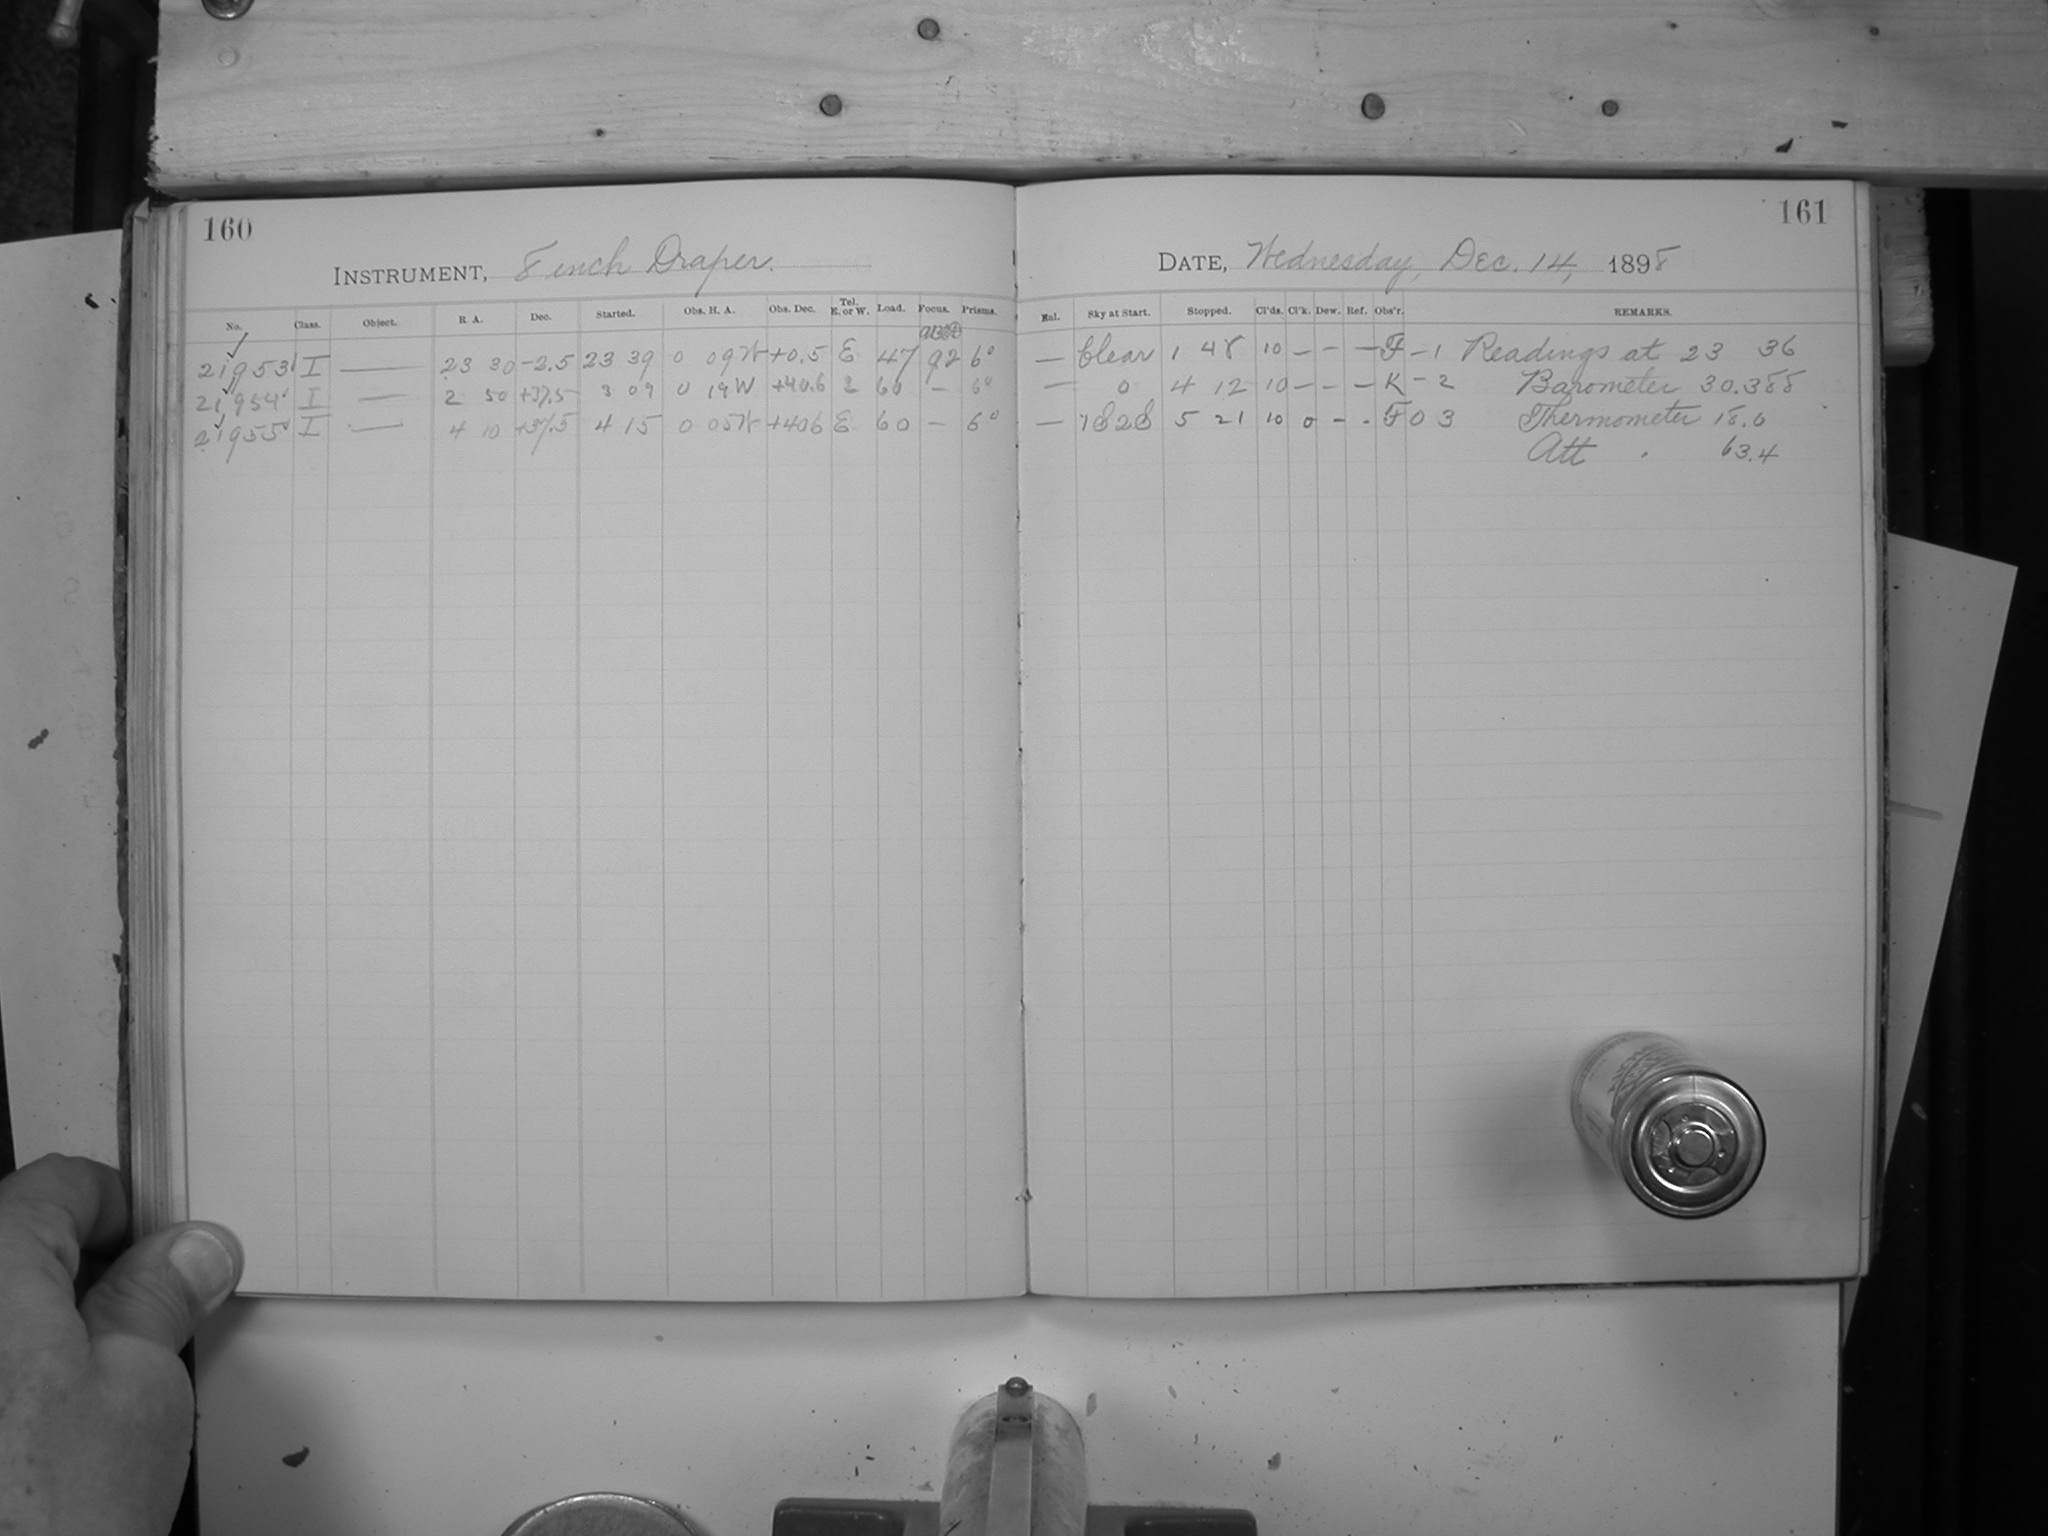 160
INSTRUMENT, 8 inch Draper.
No. Class. Object. R A. Dec. Started. Obs. H. A. Obs. Dec. Tel. E. or W. Load. Focus. Prisms.
21953 I — 23 30 -2.5 23 39 0 09W +0.5 E 47 92 6°
21954 I — 2 50 +37.5 3 09 0 19W +40.6 E 60 — 6°
21955 I — 4 10 +37.5 4 15 0 05W +406 E 60 — 6°
161
DATE, Wednesday, Dec. 14, 1898
Enl. Sky at Start. Stopped. Cl'ds. Cl'k. Dew. Ref. Obs'r. REMARKS.
— Clear 1 48 10 — — — F — 1 Readings at 23 36
— 0 4 12 10 — — — K — 2 Barometer 30.388
— 1828 5 21 10 0 — . F 0 3 Thermometer 18.0
Att . 63.4